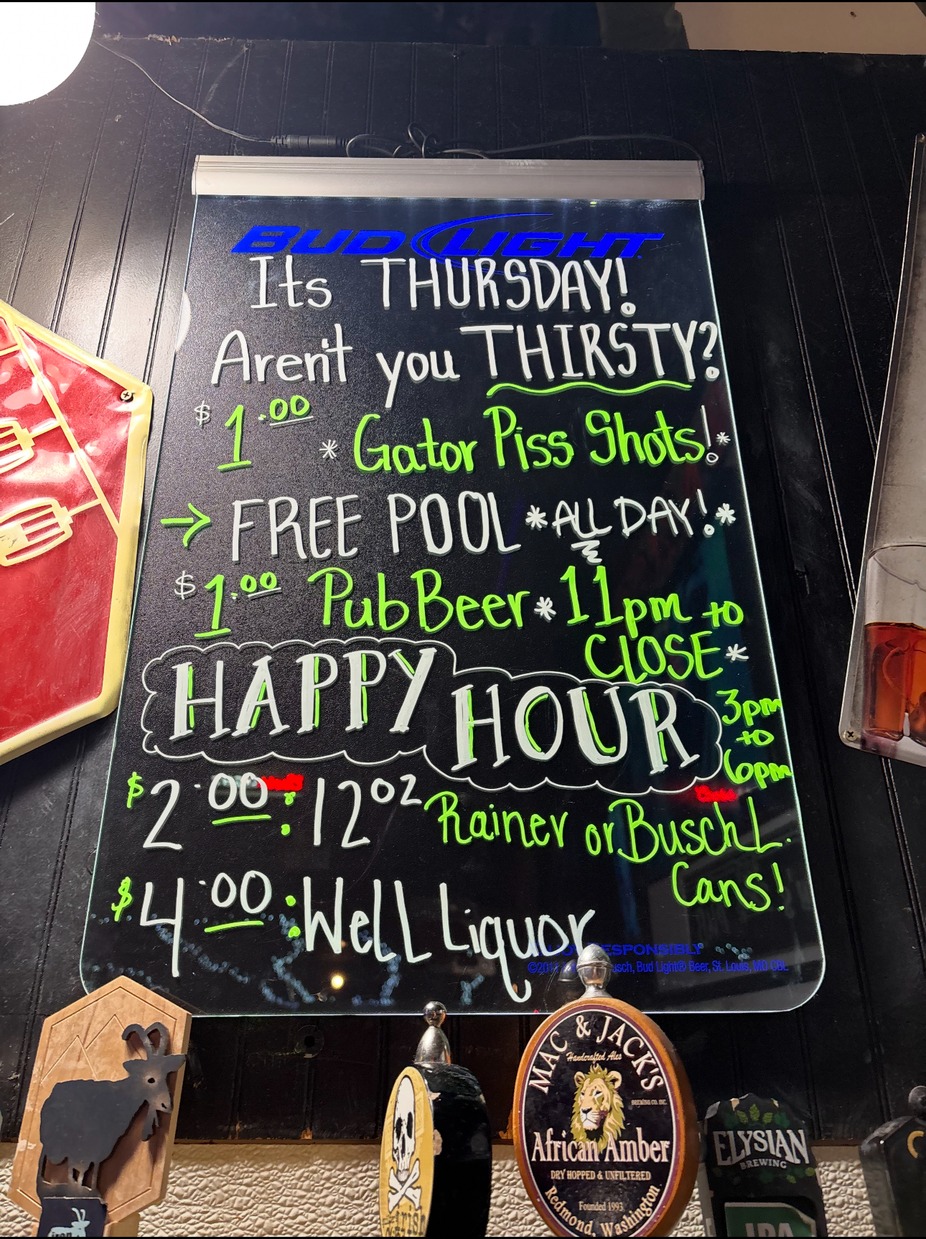 BUD LIGHT
Its THURSDAY!
Aren't you THIRSTY?
$1.00 * Gator Piss Shots! *
→ FREE POOL *ALL DAY!*
$1.00 Pub Beer * 11pm to
CLOSE *
HAPPY HOUR
3pm
to
6pm
$2.00: 12oz Rainer or Busch L.
Cans!
$4.00: Well Liquor
RESPONSIBLY
Bud Light® Beer, St. Louis, MO
MAC & JACK'S
Handcrafted Ales
BREWING CO. INC.
African Amber
DRY HOPPED & UNFILTERED
Founded 1993
Redmond, Washington
ELYSIAN
BREWING
IPA